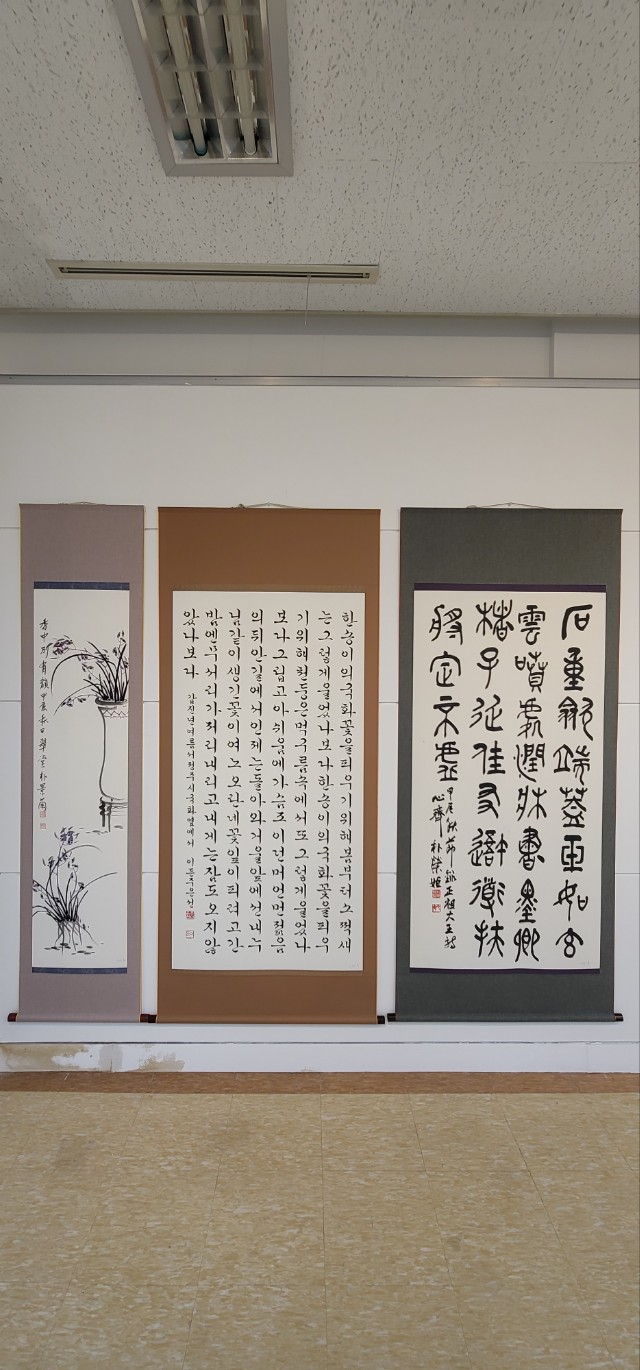 石重端蓋如玄
雲噴潤書墨卿
子延佳友扶
將定
甲辰秋節 正祖大王
한송이의국화꽃을피우기위해봄부터소쩍새
는그렇게울었나보다한송이의국화꽃을피우
기위해천둥은먹구름속에서또그렇게울었나
보다그립고아쉬움에가슴조이던머언먼젊음
의뒤안길에서인제는돌아와거울앞에선내누
님같이생긴꽃이여노오란네꽃잎이피려고간
밤엔무서리가저리내리고내게는잠도오지않
았나보다
갑진년여름서정주시국화옆에서
香中別有韻甲辰秋日